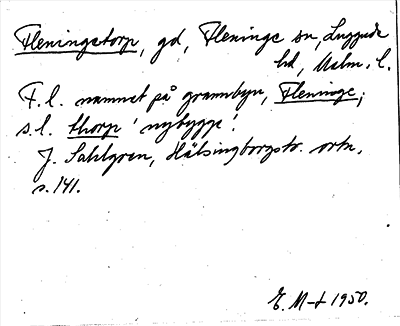 Fleningetorp, gd, Fleninge sn, Luggude
hd, Malm. l.
F. l. namnet på grannbyn, Fleninge;
s. l. thorp 'nybygge'.
J. Sahlgren, Hälsingborgstr. ortn.
s. 141.
E. M-t 1950.